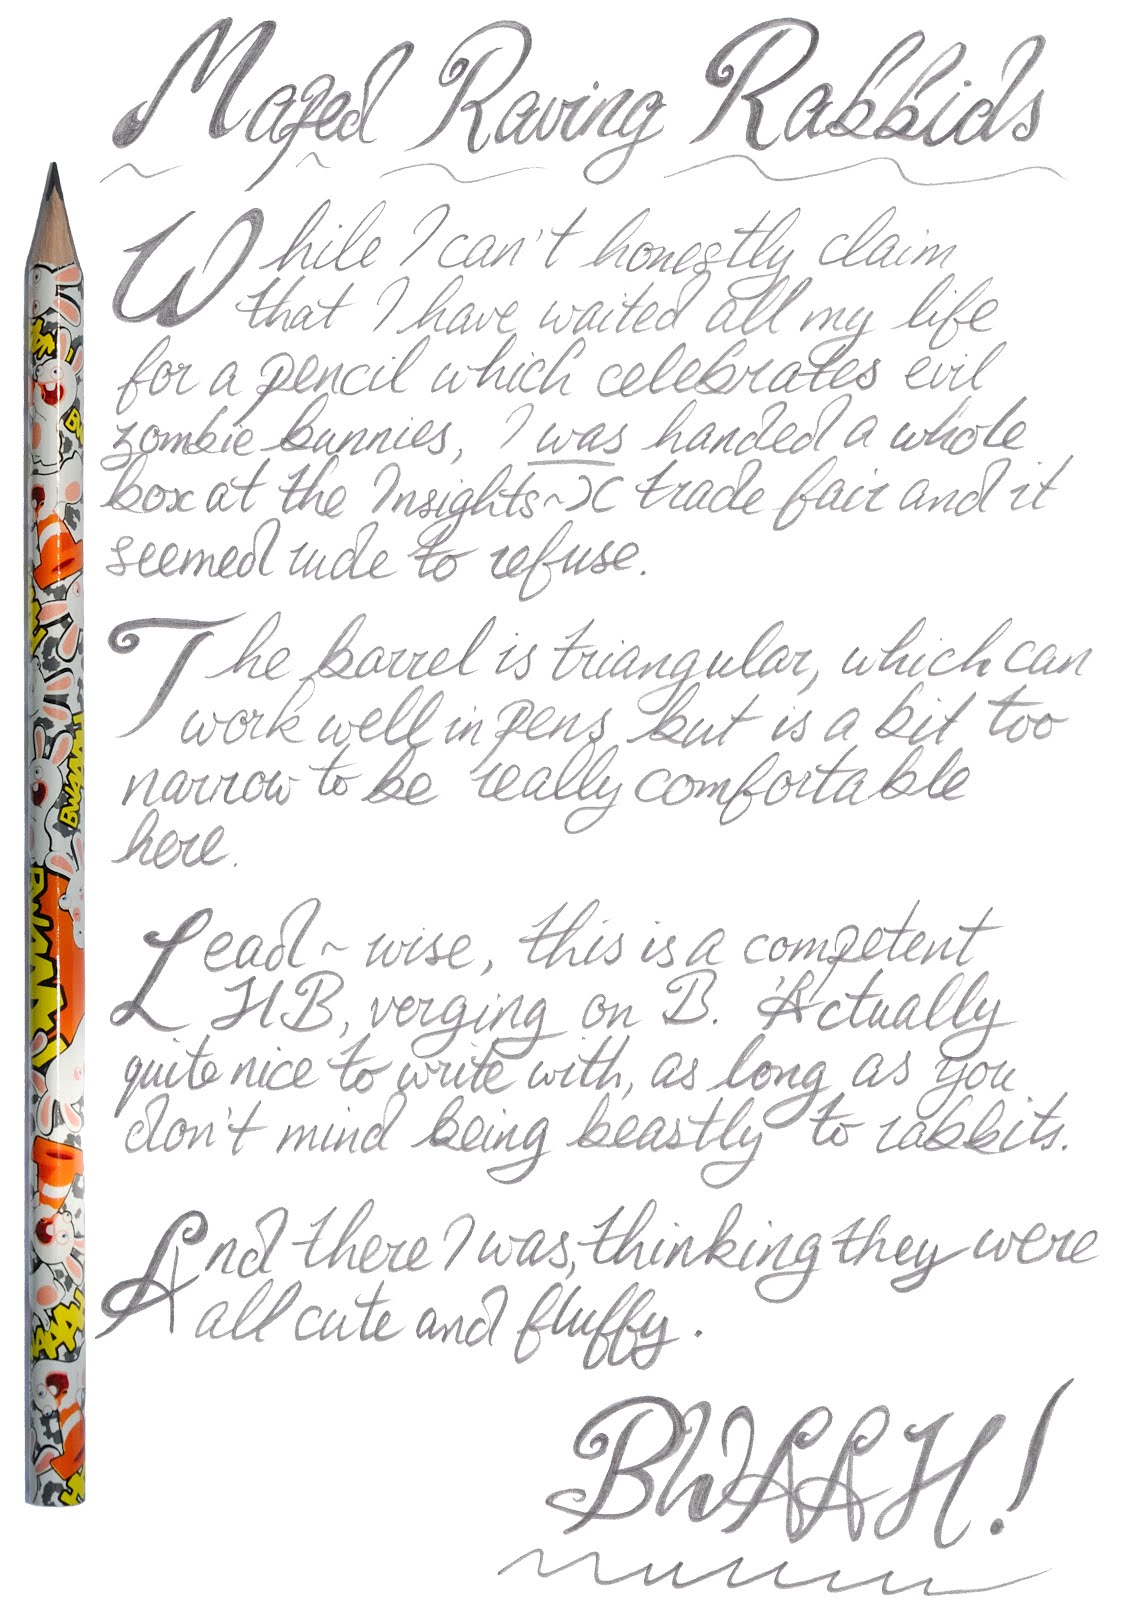 Maped Raving Rabbids
While I can't honestly claim
that I have waited all my life
for a pencil which celebrates evil
zombie bunnies, I was handed a whole
box at the Insights~X trade fair and it
seemed rude to refuse.
The barrel is triangular, which can
work well in pens but is a bit too
narrow to be really comfortable
here.
Lead~wise, this is a competent
HB, verging on B. Actually
quite nice to write with, as long as you
don't mind being beastly to rabbits.
And there I was, thinking they were
all cute and fluffy.
BWAAH!